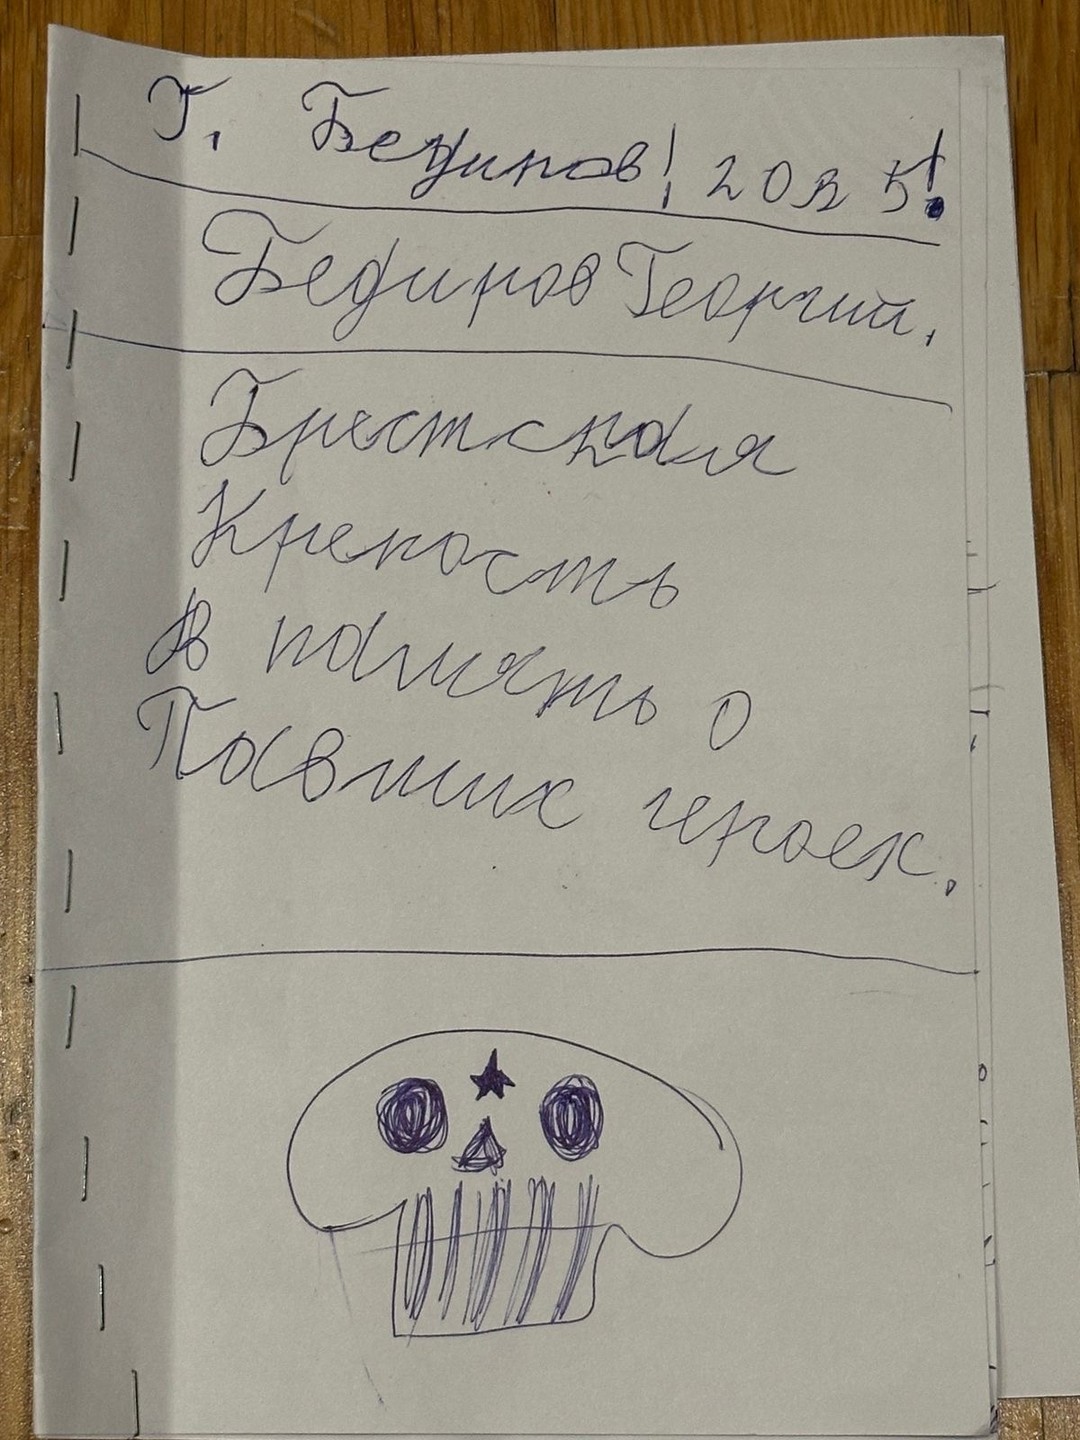 Г. Бединов! 20 в 5!
Бединов Георгий.
Брестская
Крепость
В память о
Павших героех.